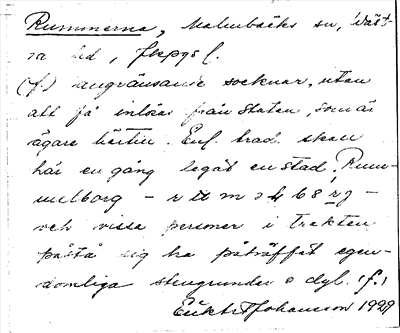 Rummerna, Malmbäcks sn, Väst-
ra hd, Jkpgs l.
(f.) angränsande socknar, utan
att få inlösas från staten, som är
ägare härtill. Enl. trad. skall
här en gång legat en stad, Rum-
melborg –
och vissa personer i trakten
påstå sig ha påträffat egen-
domliga stengrunder o dyl. (f.)
Johansson 1929